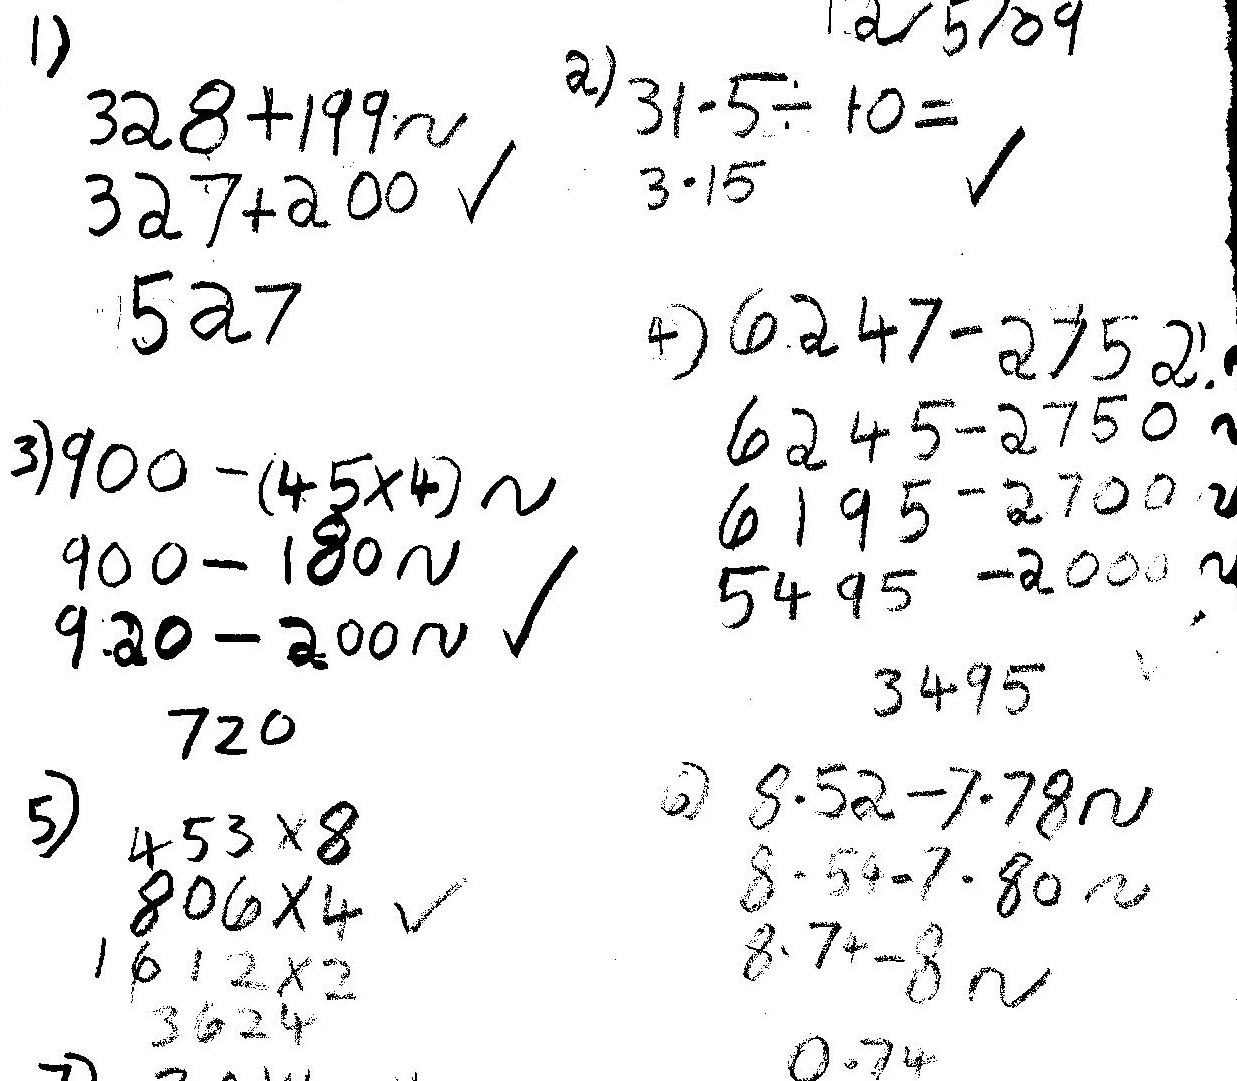 12/5/09
1)
328+199~
327+200 ✓
527
2) 31.5÷10=
3.15 ✓
3) 900-(45×4)~
900-180~
920-200~ ✓
720
4) 6247-2752
6245-2750 ~
6195-2700 ~
5495-2000 ~
3495
5)
453×8
806×4 ✓
1612×2
3624
6) 8.52-7.78~
8.54-7.80~
8.74-8~
0.74
7)